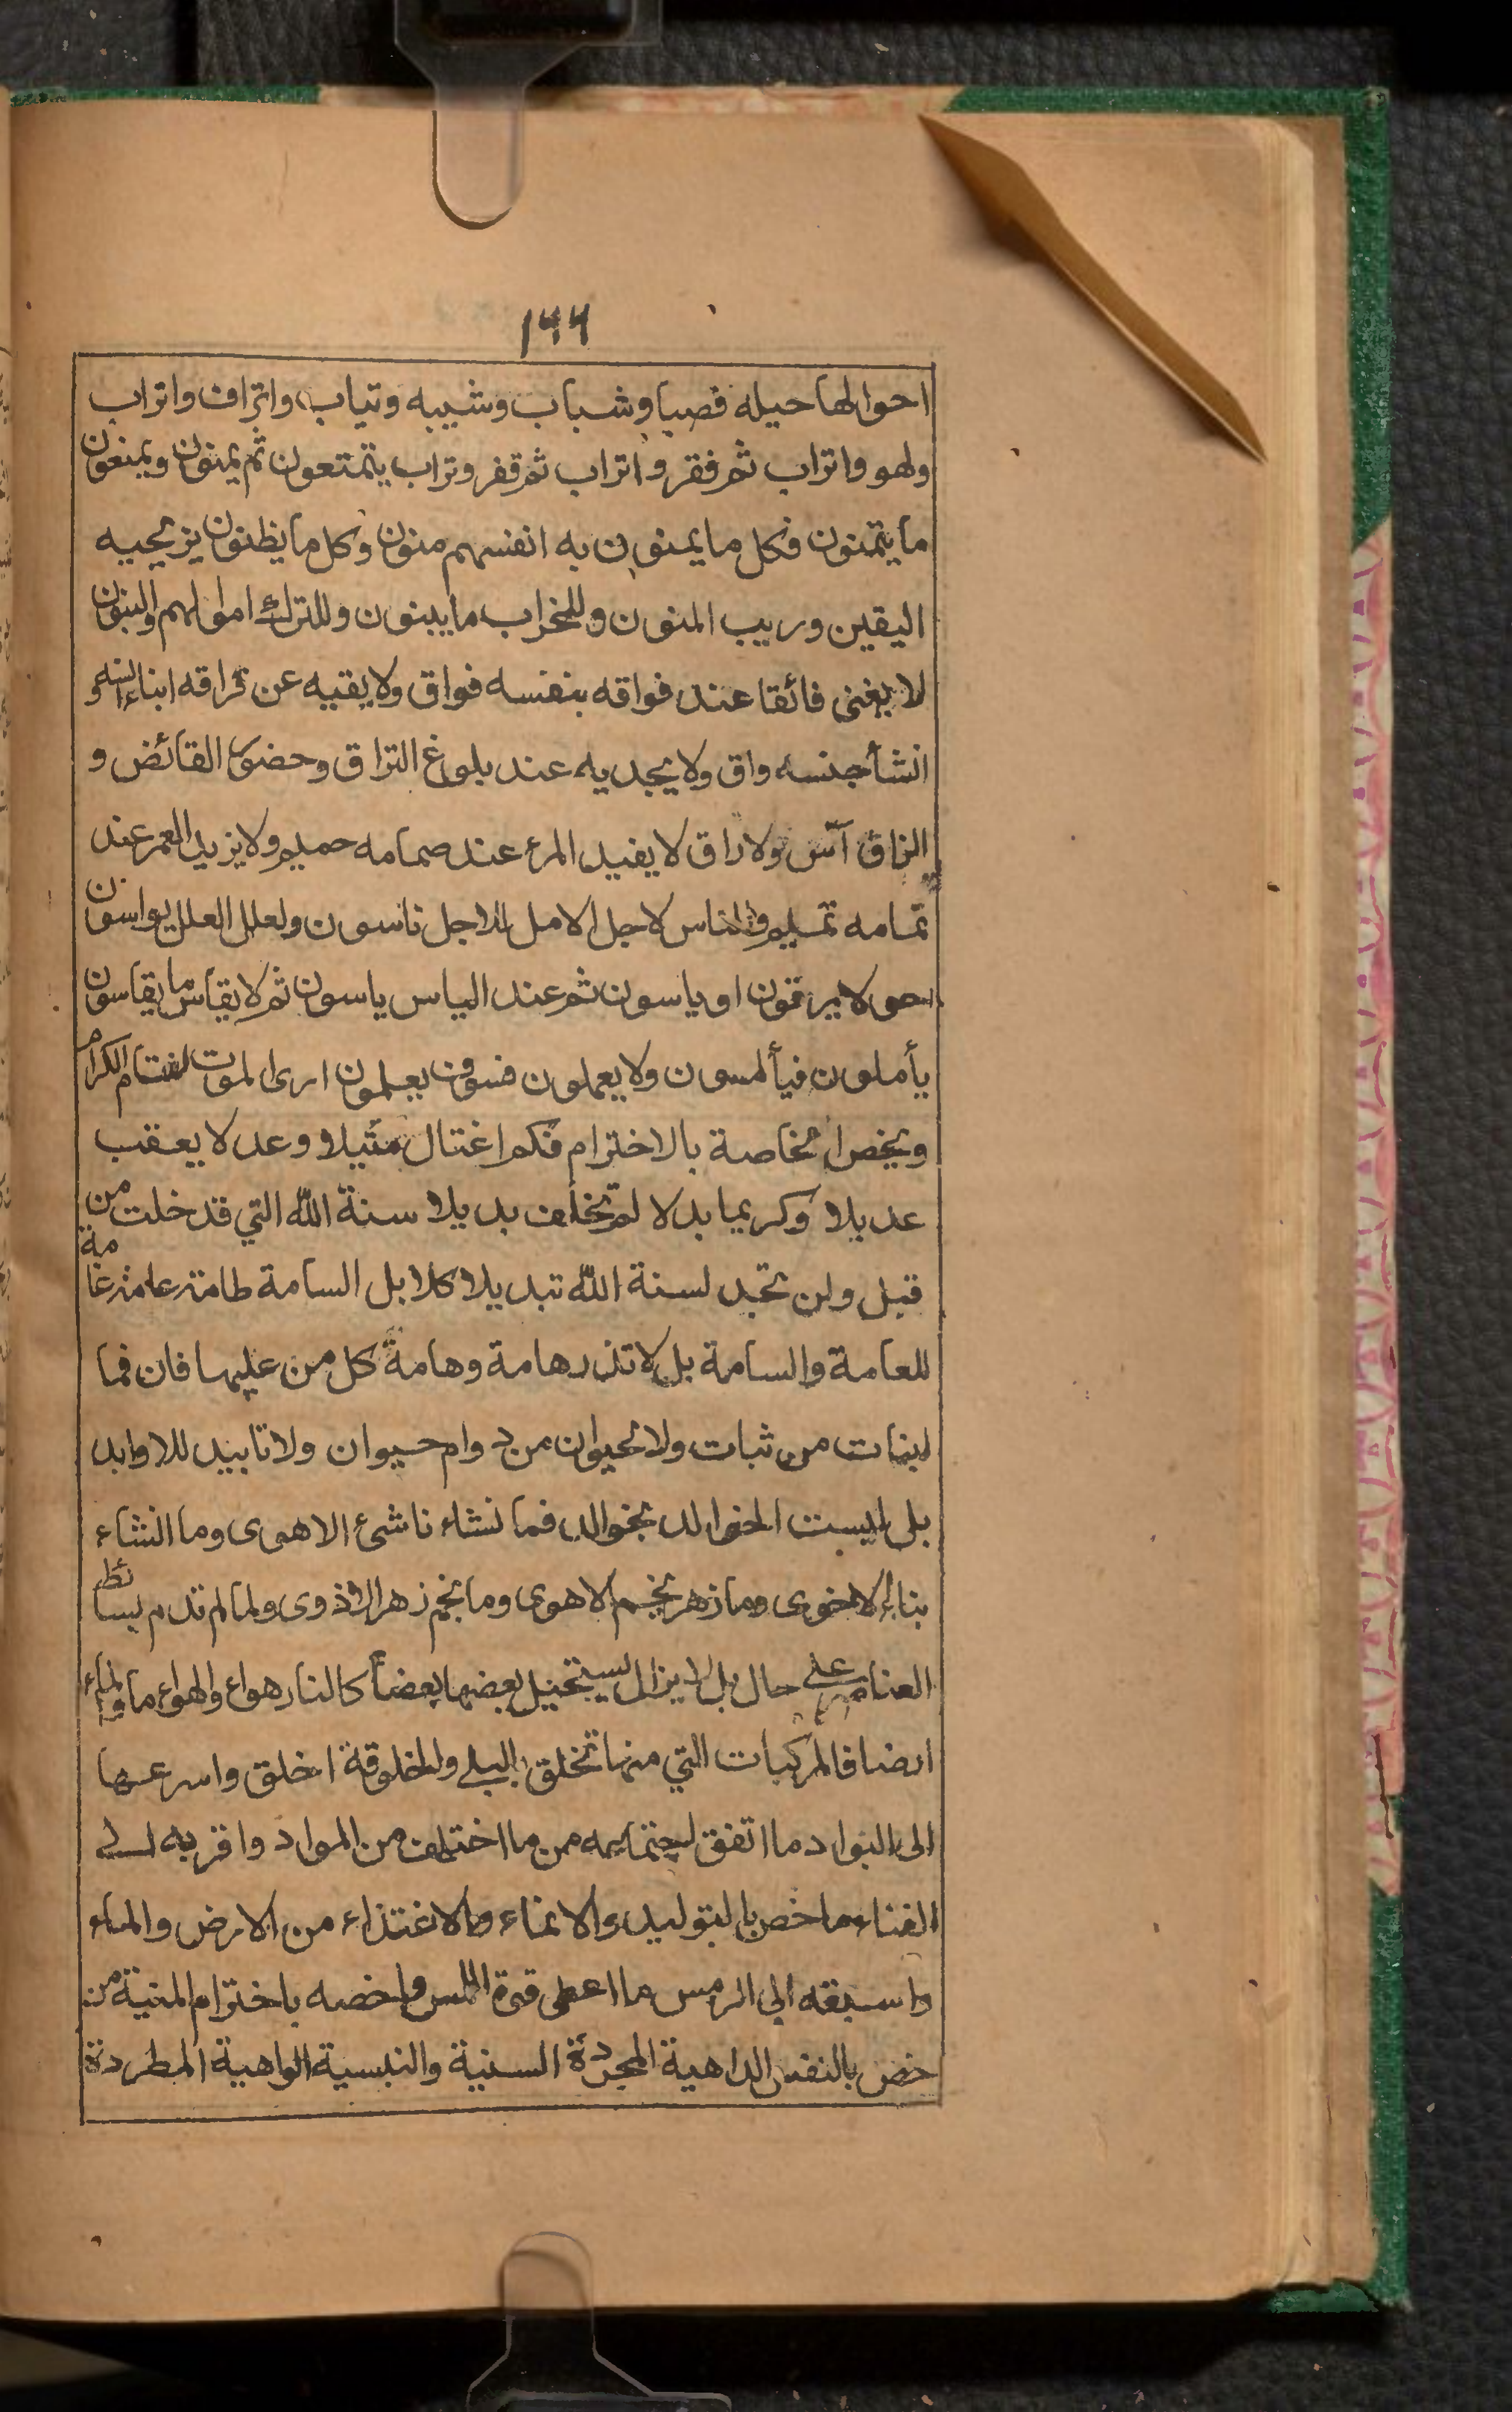 ١٦٦
احوالها حيله فصبا وشباب وشيبه وتياب واتراف واتراب
ولهو واتراب ثم فقر واتراب ثم قفر وتراب يتمتعون ثم يمنون ويمنعون
ما يتمنون فكل ما يمنون به انفسهم منون وكل ما يظنون يزيحيه
اليقين وريب المنون وللخراب ما يبنون وللترك اموالهم والبنون
لا يغنى فائقا عند فواقه بنفسه فواق ولا يقيه عن فراقه ابناء
انشأ جنسه واق ولا يجديه عند بلوغ التراق وحضور القائض و
الزاق آس ولا راق لا يفيد المرء عند حمامه حميم ولا يزيد العمر عند
تمامه تميم والناس لاجل الامل للاجل ناسون ولعلل العلل يواسون
لا يرقون او ياسون ثم عند الياس ياسون ثم لا يقاس ما يقاسون
يأملون فيألمسون ولا يعملون فسوف يعلمون ارى الموت يعتام الكرام
ويخص الخاصة بالاخترام فكم اغتال مثيلا وعد لا يعقب
عديلا وكريما بدلا لم يخلف بديلا سنة الله التي قد خلت من
قبل ولن تجد لسنة الله تبديلا كلا بل السامة طامة عامة غامة
للعامة والسامة بل لا تذر هامة وهامة كل من عليها فان فما
لنبات من ثبات ولا لحيوان من دوام حيوان ولا تابيد للاوابد
بلى ليست الخوالد بخوالد فما نشاء ناشئ الا هوى وما انشاء
بناء الا خوى وما زهر نجم الا هوى وما نجم زهر الا ذوى ولما لم تدم بسائط
العناصر على حال بل لا يزال يستحيل بعضها بعضا كالنار هواء والهواء ماء والماء
ارضا فالمركبات التي منها تخلق بالبلى والخلوقة اخلق واسرعها
الى البوار ما اتفق من ما اختلف من المواد واقربه الى
الفناء ما خص بالتوليد والانماء والاغتذاء من الارض والماء
واسبقه الى الرمس ما اعطى قوة اللمس واخصه باخترام المنية من
خص بالنفس الداهية المجردة السنية والنبسية الواهية المطردة